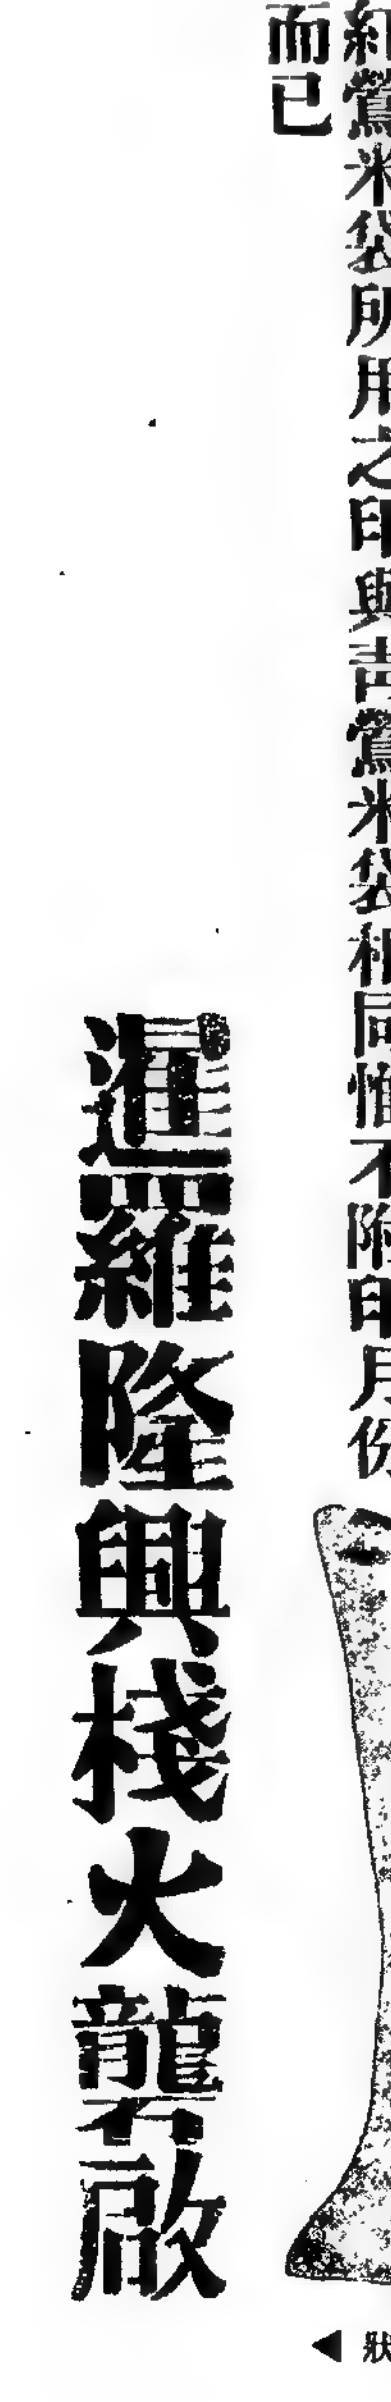 紅鶯米袋所用之印與吉鶯米袋相同惟不附印月份
而已
暹羅隆興棧火礱啟
狀